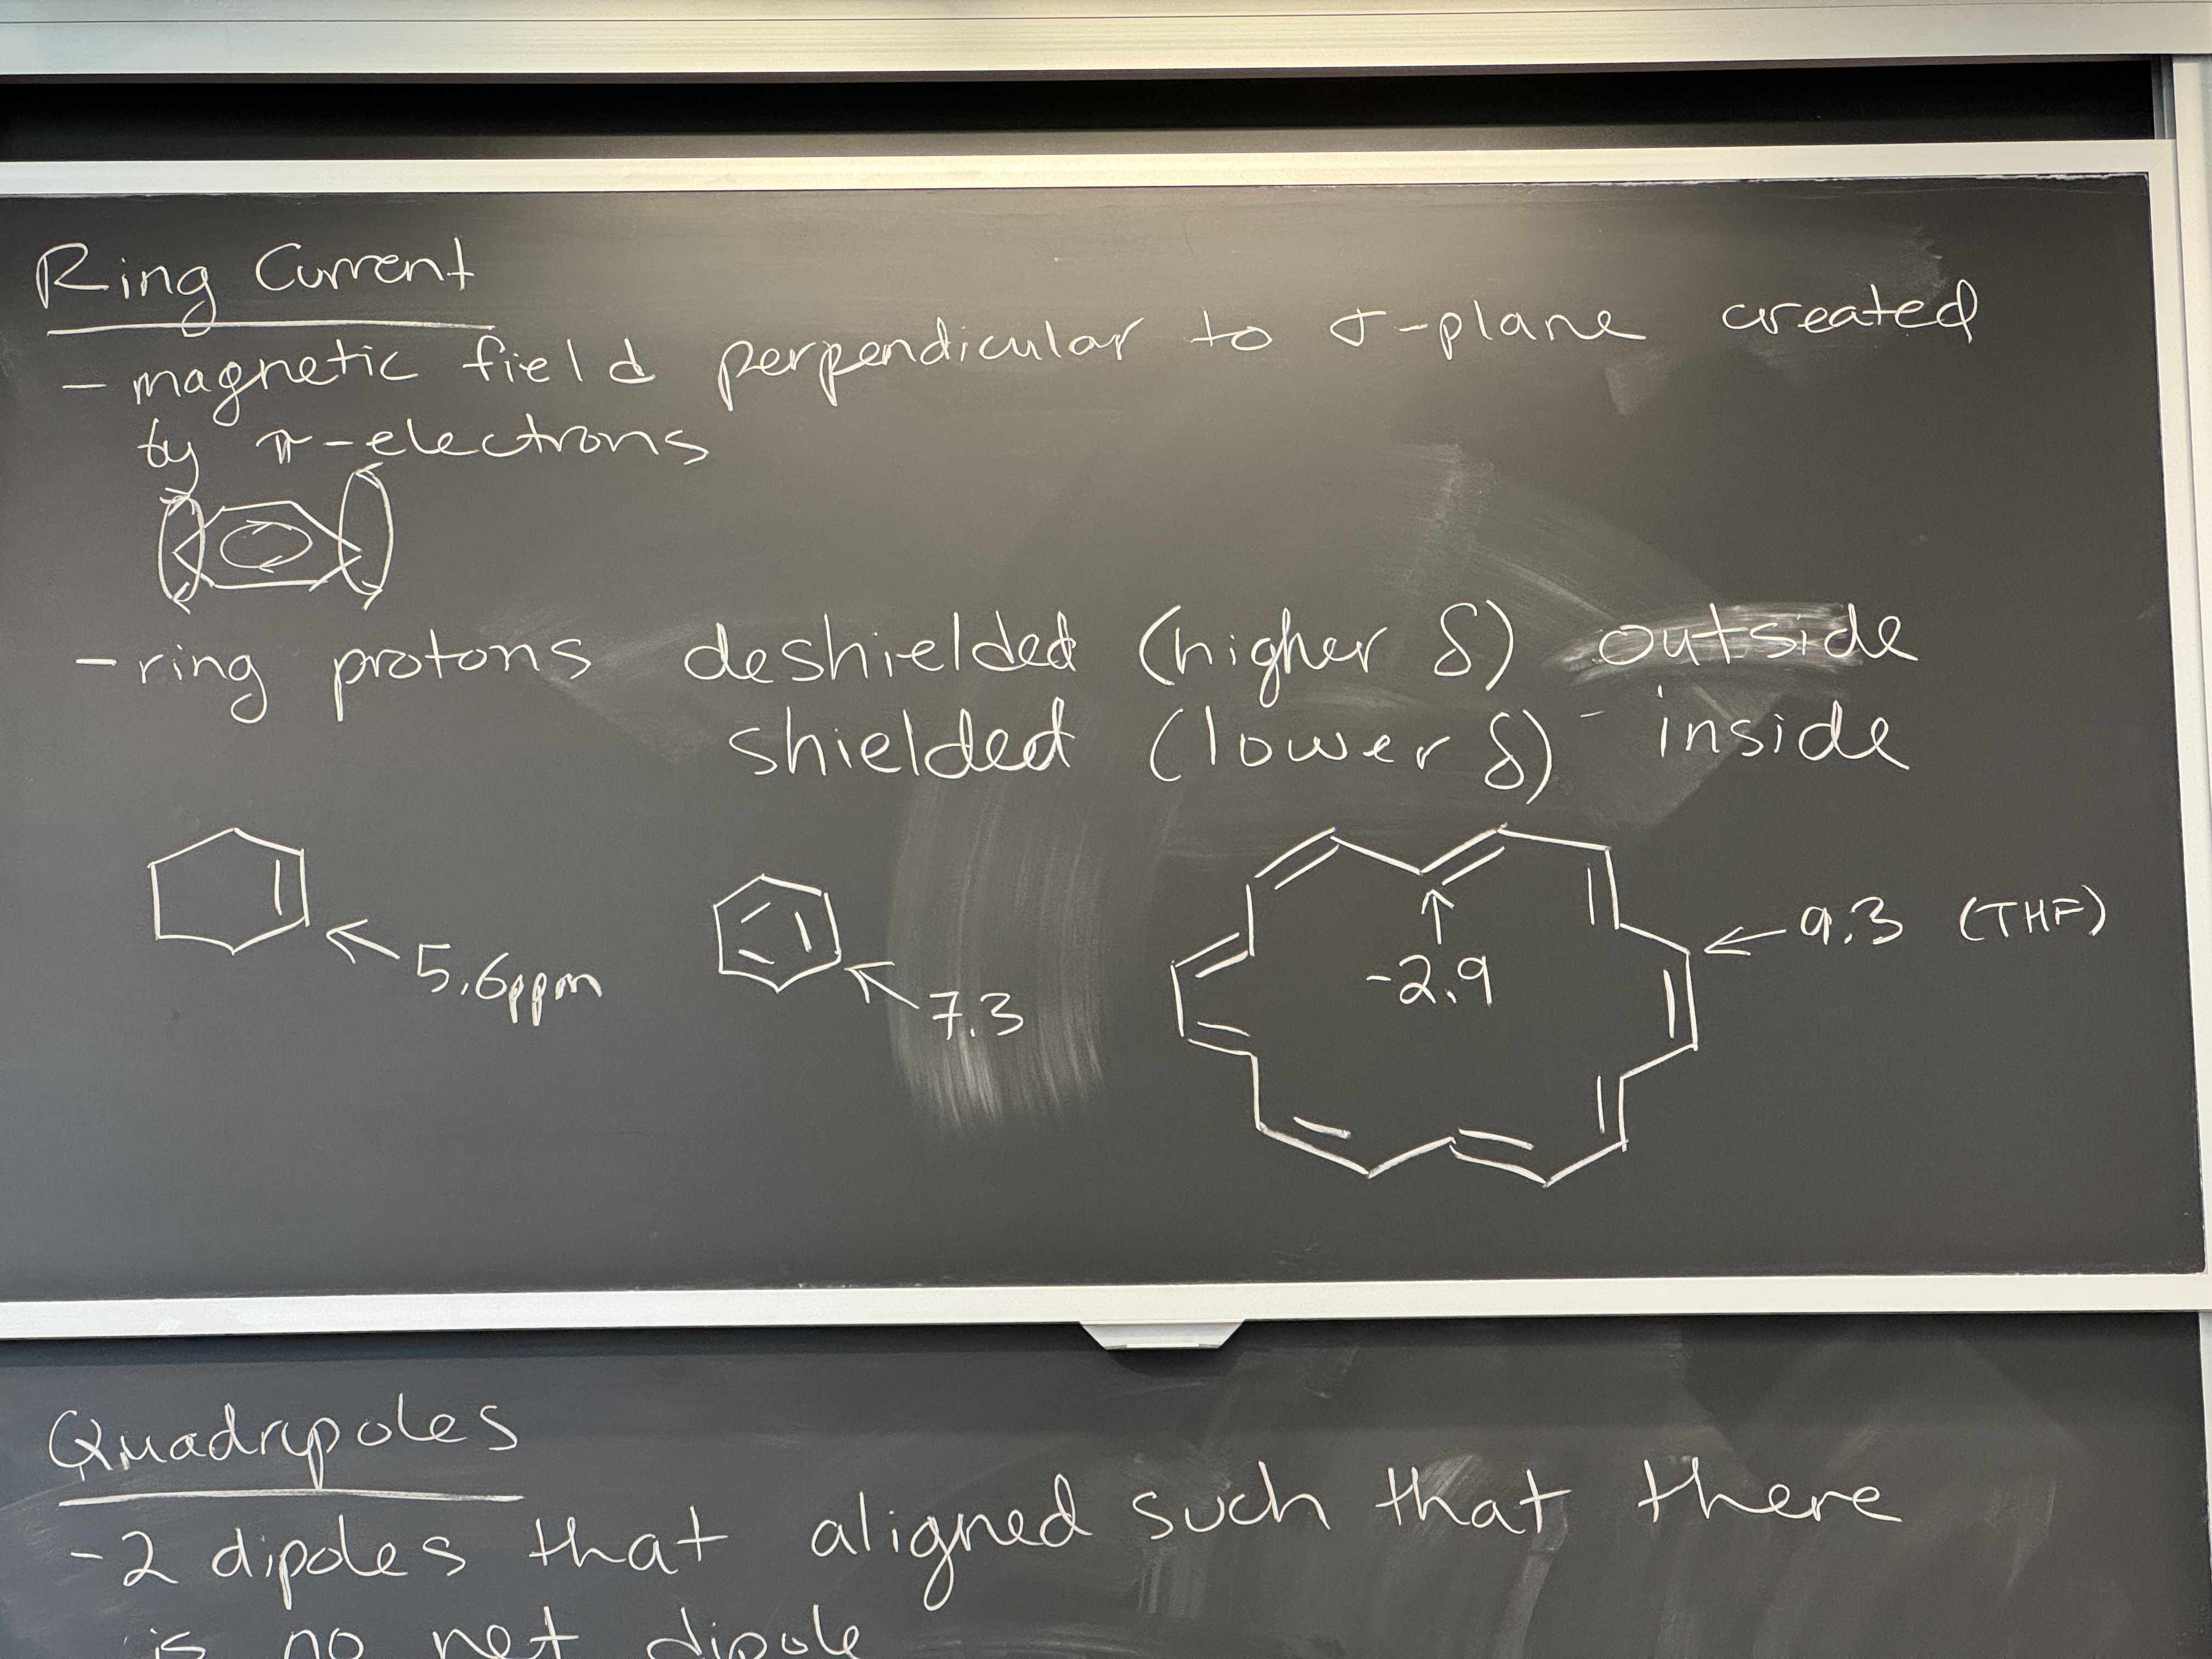 Ring Current
- magnetic field perpendicular to σ-plane created
by π-electrons
- ring protons deshielded (higher δ) outside
shielded (lower δ) - inside
5.6ppm
7.3
-2.9
9.3 (THF)
Quadrupoles
- 2 dipoles that aligned such that there
is no net dipole